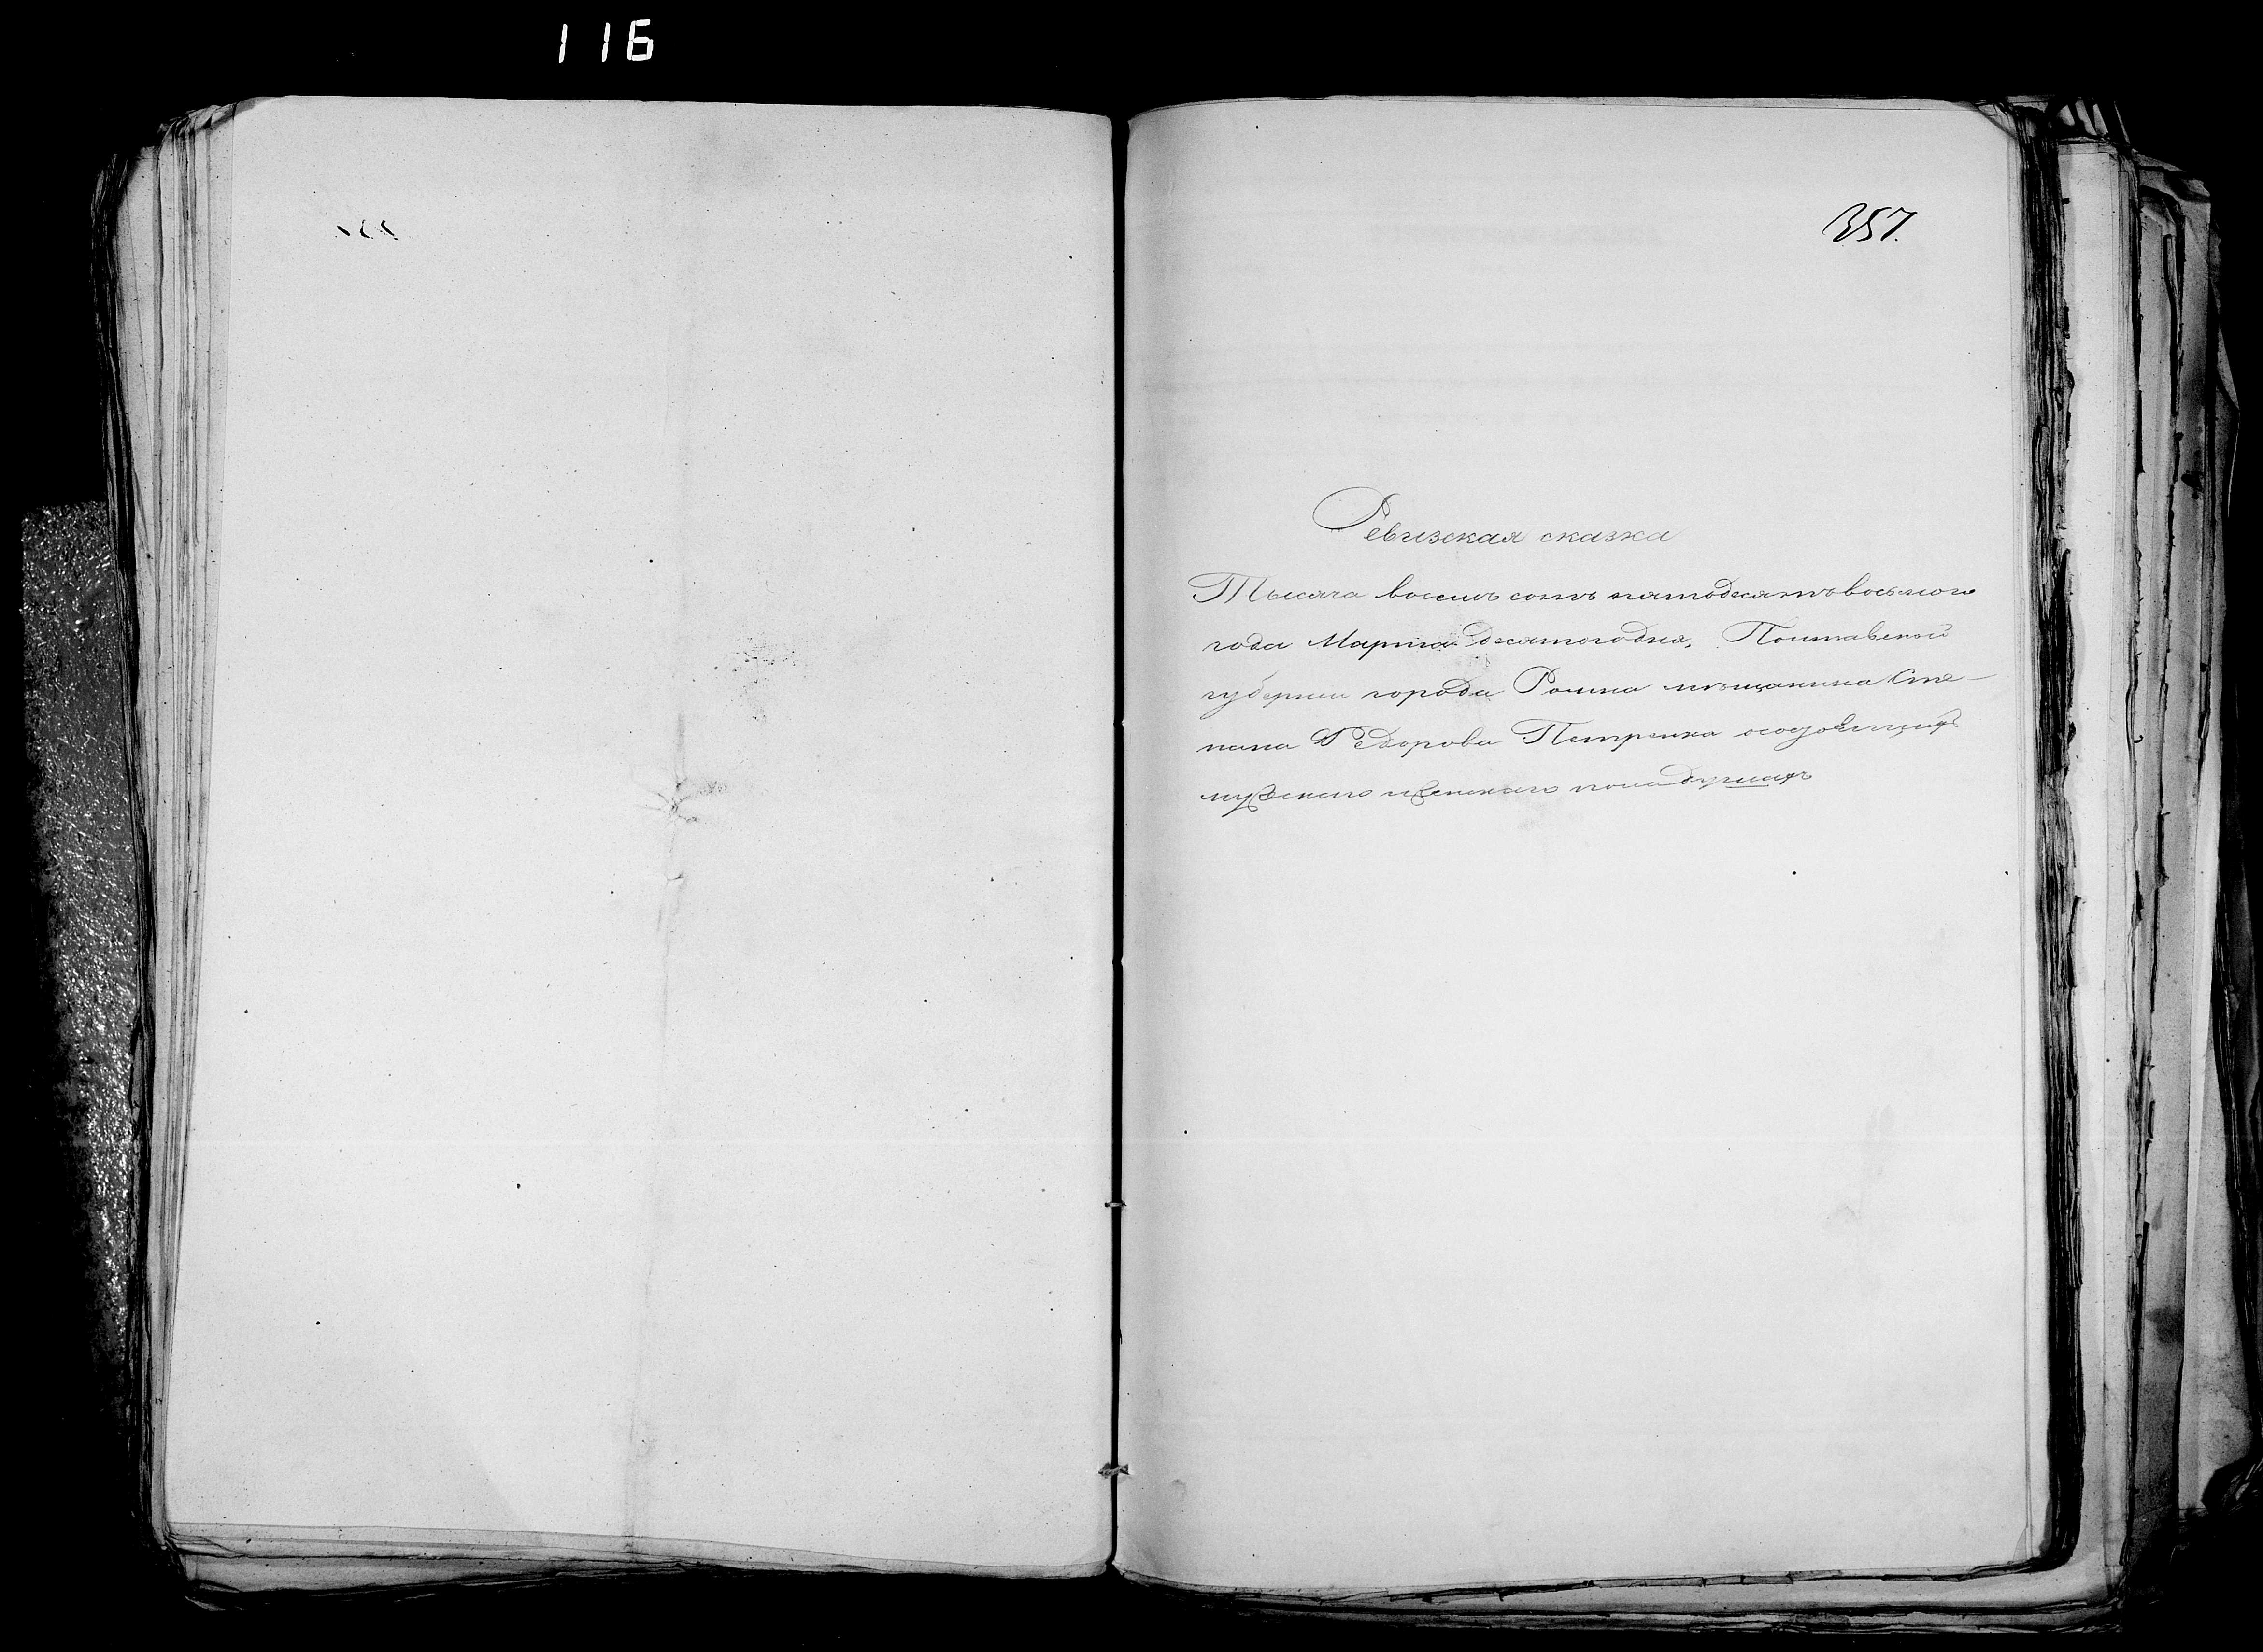 116
357.
Ревизская сказка
Тысяча восемь сотъ пятьдесятъ восьмого
года Марта десятого дня, Полтавской
губернии города Ромна мещанина Сте-
пана Федорова Петренка осостоящихъ
мужеского и женского пола душахъ